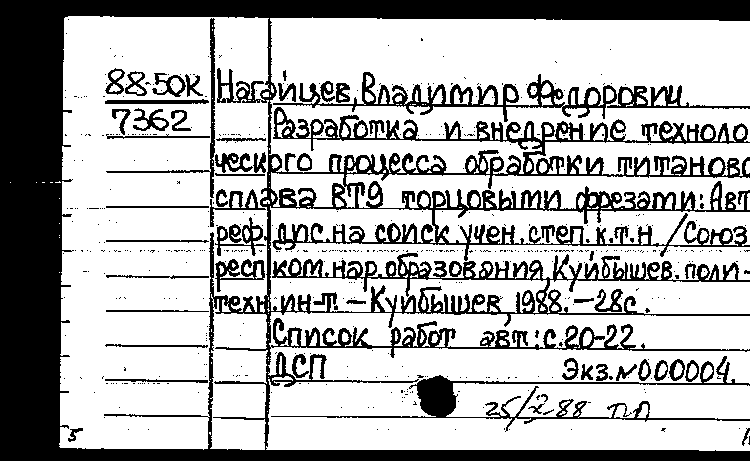 88-50К Нагайцев, Владимир Федорович.
7362 Разработка и внедрение техноло
ческого процесса обработки титаново
сплава ВТ9 торцовыми фрезами: Авт
реф. дис. на соиск. учен. степ. к.т.н. / Союз
респ. ком. нар. образования, Куйбышев. поли-
техн. ин-т. – Куйбышев, 1988. – 28с.
Список работ авт: с.20-22.
ДСП Экз. № 000004.
88 ПЛ
5